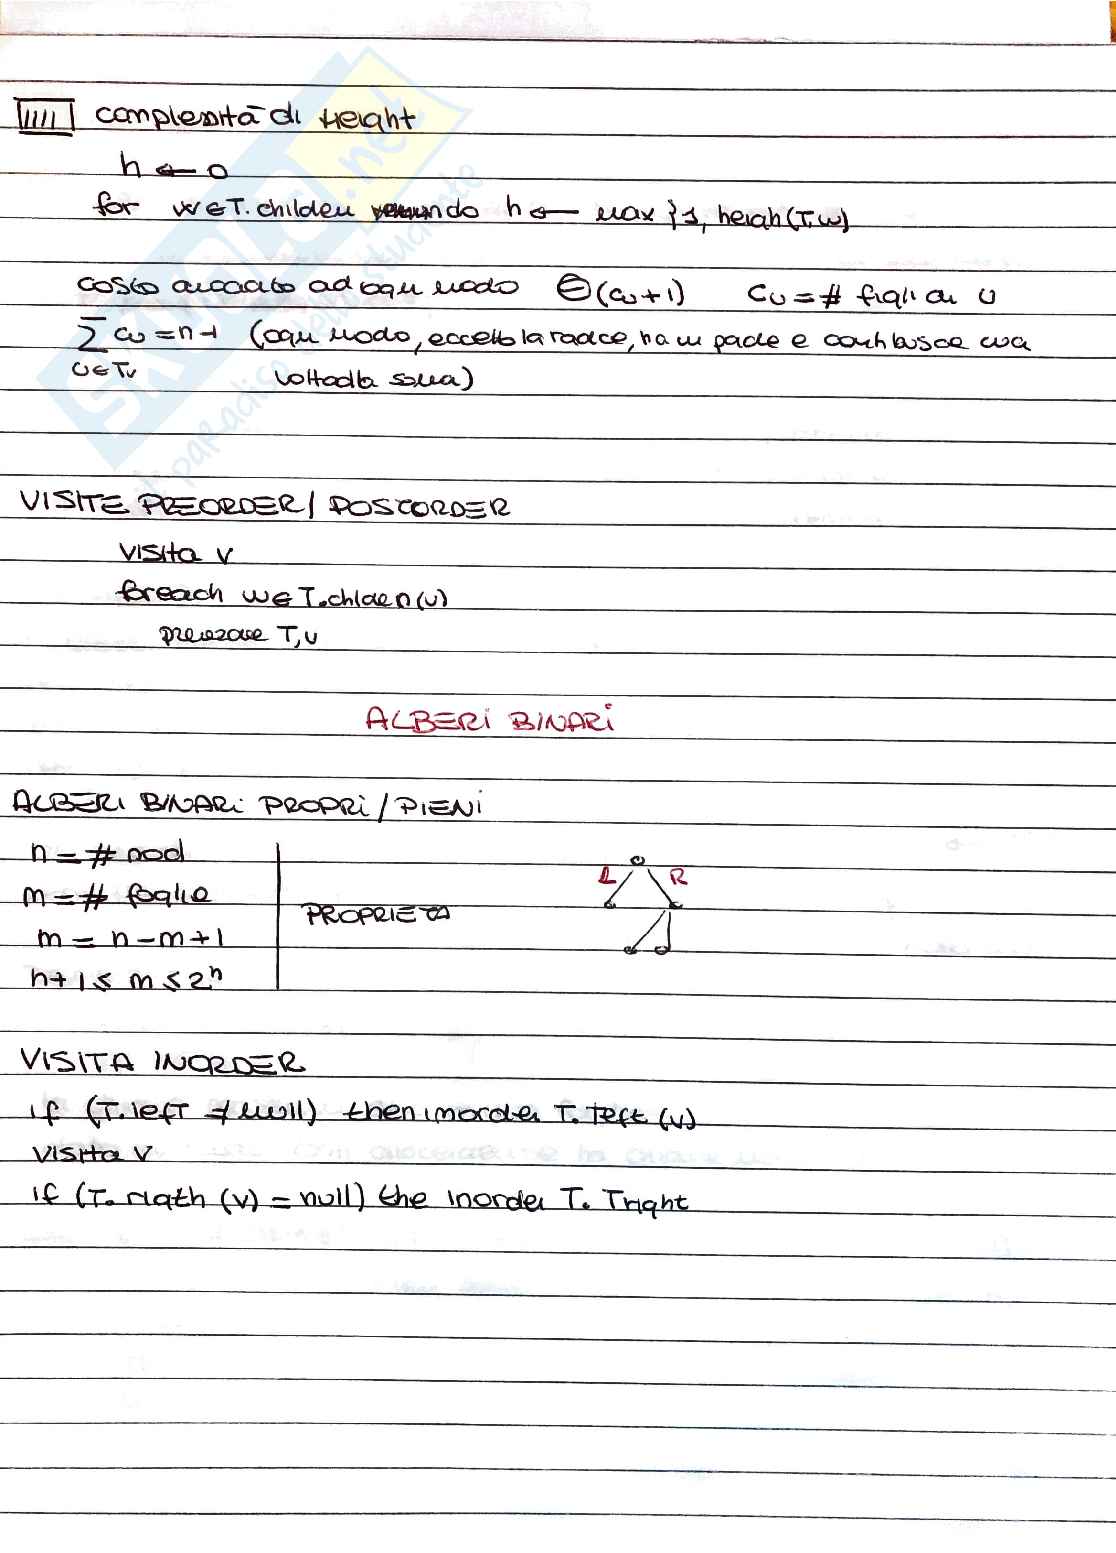 complessità di Height
h ← 0
for w ∈ T.childen do h ← max {1, heigh(T,w)
costo associato ad ogni nodo Θ(cv+1) Cv = # figli di v
Σ cv = n-1 (ogni nodo, eccetto la radice, ha un padre e contribuisce una
v∈Tv volta alla somma)
VISITE PREORDER/ POSTORDER
visita v
foreach w ∈ T.childen(v)
preorder T,v
ALBERI BINARI
ALBERI BINARI PROPRI/PIENI
n = # nod
m = # foglie
m = n-m+1
h+1 ≤ m ≤ 2ʰ
PROPRIETA
L R
VISITA INORDER
if (T.left ≠ null) then inorder T. Teft (v)
visita v
if (T. rigth (v) = null) the inorder T. Tright
SKUOLA.net
il paradiso dello studente